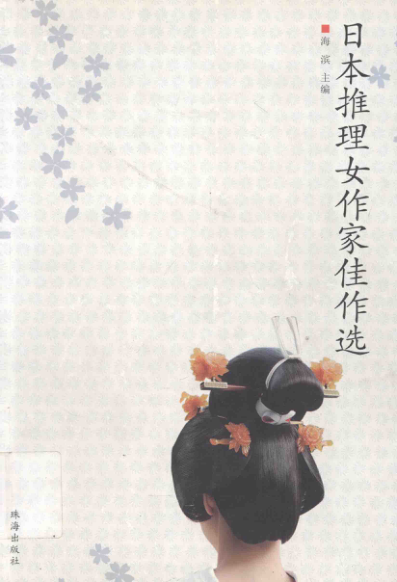 日本推理女作家佳作选
海滨 主编
珠海出版社